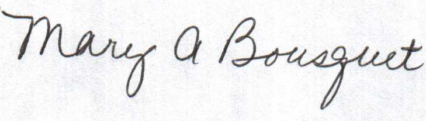 Mary A Bousquet